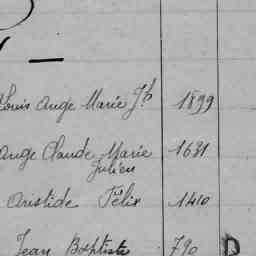 Louis Ange Marie Jh 1899
Ange Claude Marie 1631
Julien
Aristide Félix 1410
Jean Baptiste 790 D